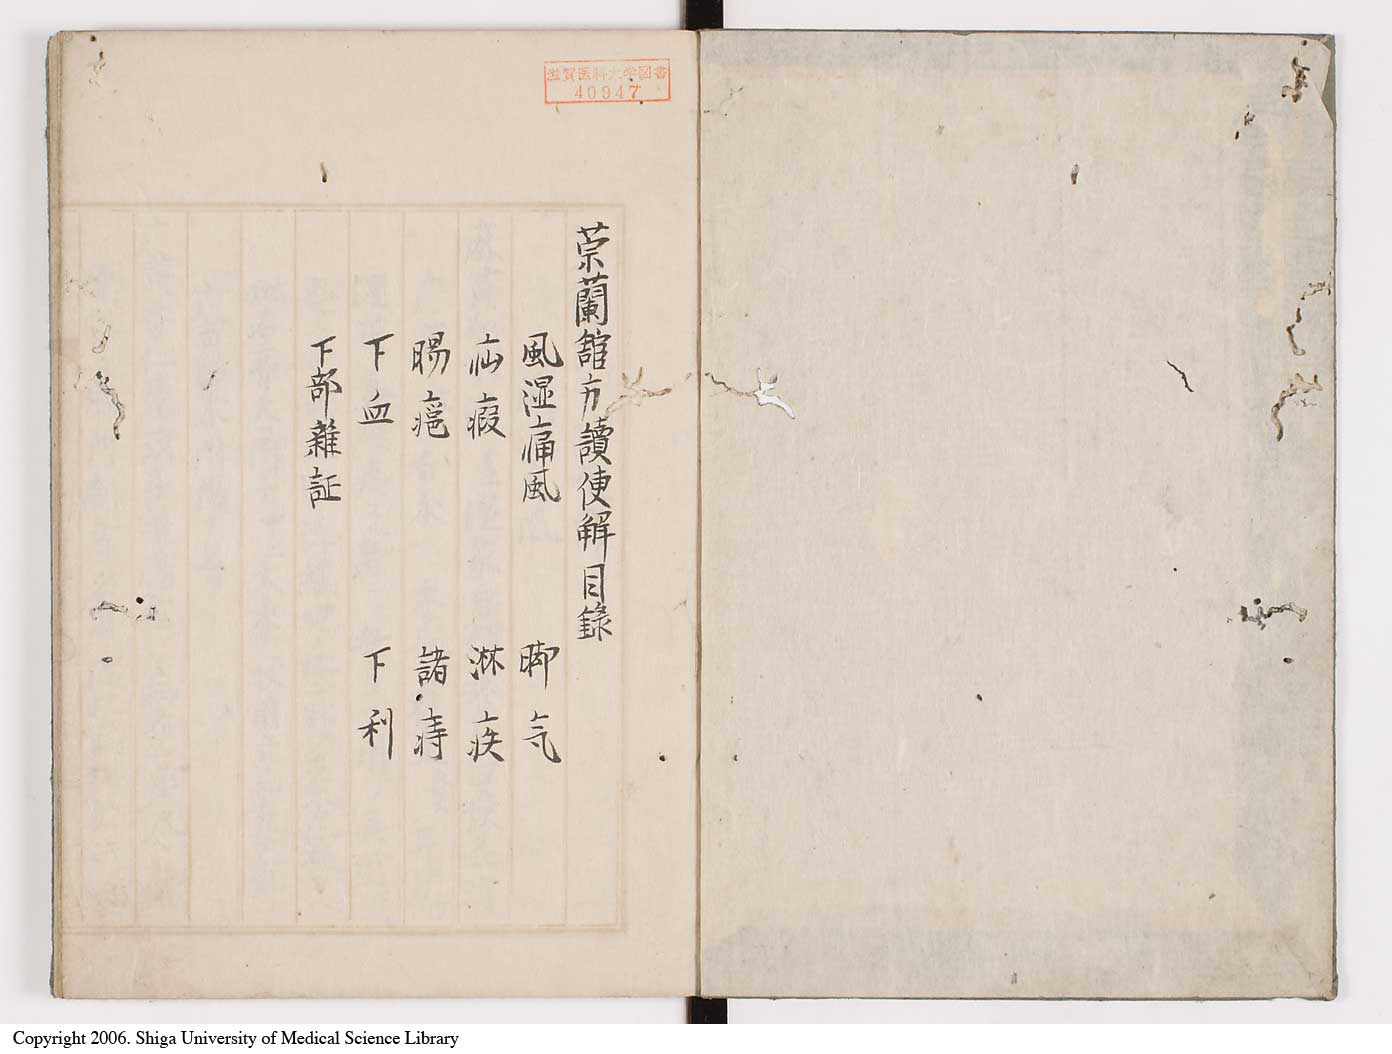 滋賀医科大学図書
40947
崇蘭舘方讀便解目錄
風湿痛風　脚気
疝瘕　淋疾
腸痔　諸痔
下血　下利
下部雜証
Copyright 2006. Shiga University of Medical Science Library